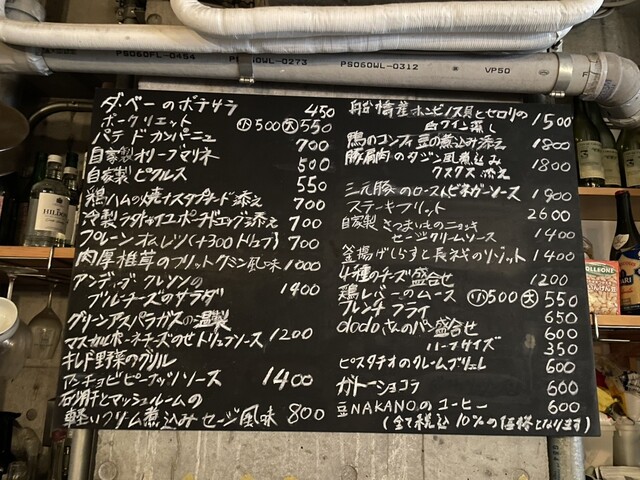 PS060FL-0454
PS060WL-0273
PS060WL-0312
VP50
ダ・ベーのポテサラ 450
ポークリエット 小500大550
パテドカンパーニュ 700
自家製オリーブマリネ 500
自家製ピクルス 550
鶏ハムの焼ナスタプナード添え 700
冷製ラタトゥイユポーチドエッグ添え 700
プレーンオムレツ(+300トリュフ) 700
肉厚椎茸のフリットクミン風味 1000
アンディーブクレソンの
ブルーチーズのサラダ 1400
グリーンアスパラガスの温製
マスカルポーネチーズのせトリュフソース 1200
野菜のグリル
アンチョビピーナッツソース 1400
とマッシュルームの
軽いクリーム煮込みセージ風味 800
船橋産ホンビノス貝とセロリの
白ワイン蒸し 1500
鴨のコンフィ豆の煮込み添え 1800
豚肩肉のタジン風煮込み
クスクス添え 1800
三元豚のローストビネガーソース 1900
ステーキフリット 2600
自家製さつまいものニョッキ
セージクリームソース 1400
釜揚げしらすと長ネギのリゾット 1400
4種のチーズ盛合せ 1200
鶏レバーのムース 小500大550
フレンチフライ 650
dodoさんのパン盛合せ 600
ハーフサイズ 350
ピスタチオのクレームブリュレ 600
ガトーショコラ 600
豆NAKANOのコーヒー 600
(全て税込10%の価格となります)